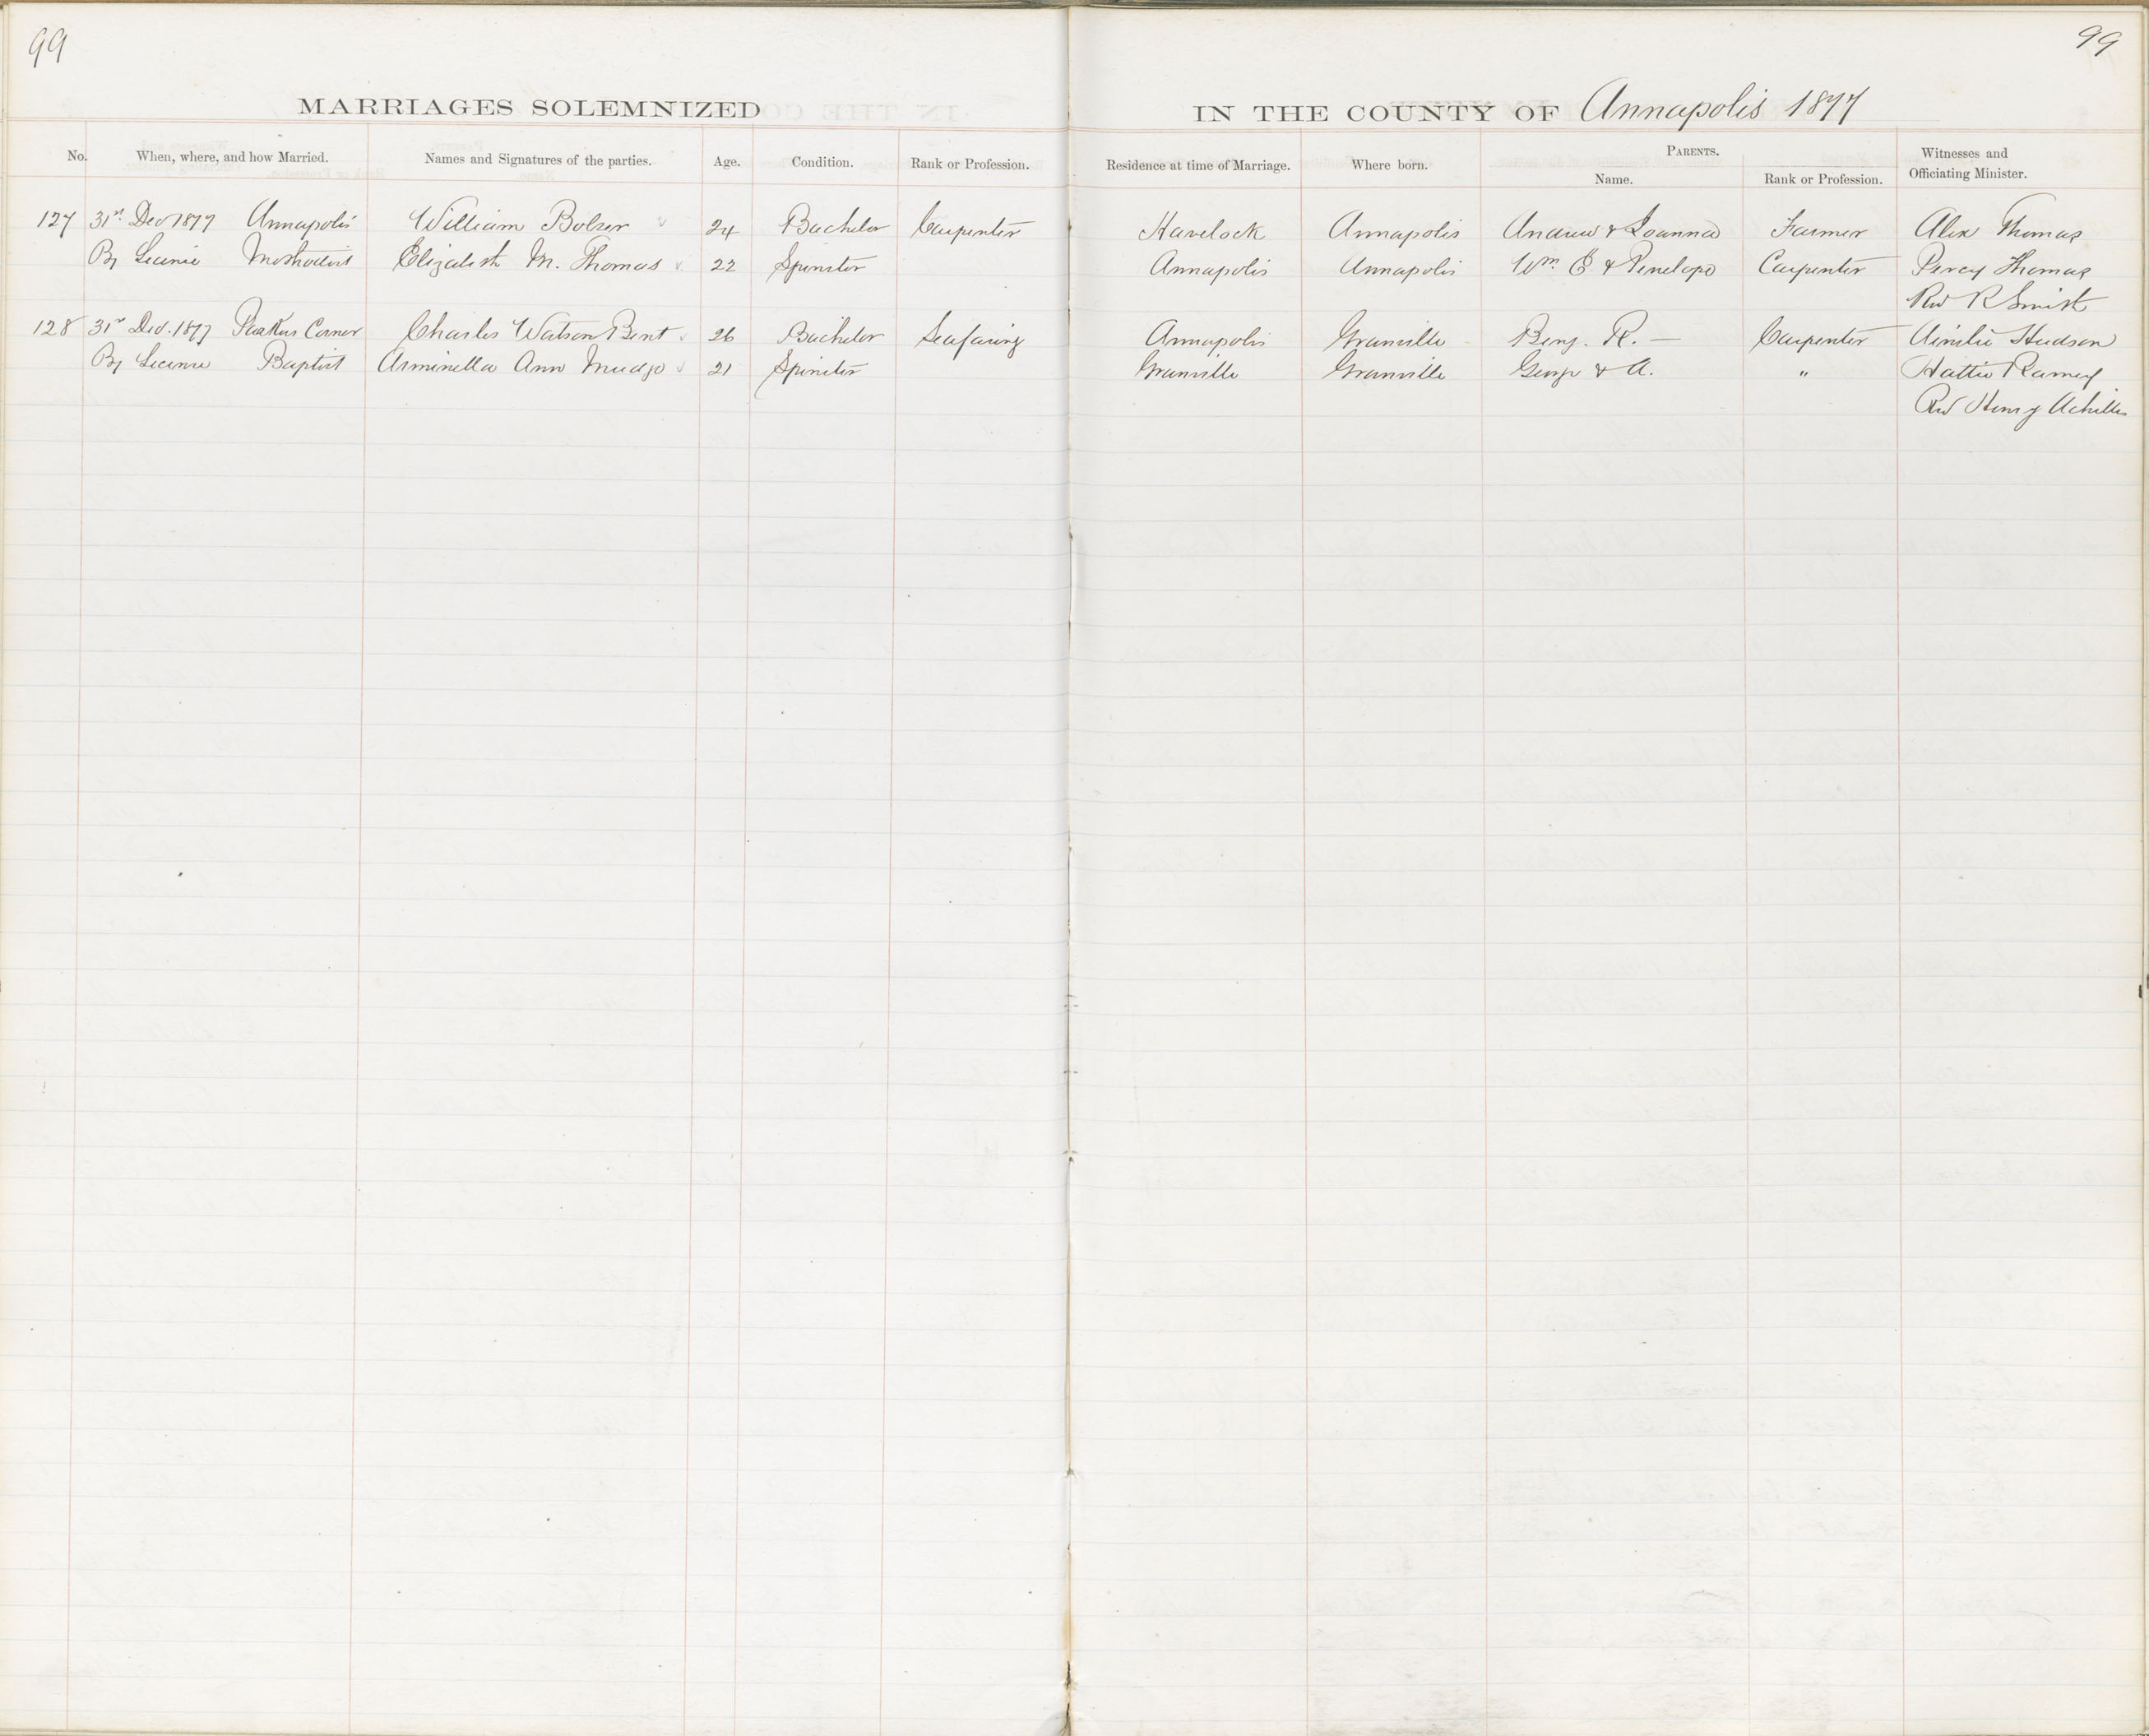 99
99
MARRIAGES SOLEMNIZED IN THE COUNTY OF Annapolis 1877
No. When, where, and how Married. Names and Signatures of the parties. Age. Condition. Rank or Profession. Residence at time of Marriage. Where born. PARENTS. Name. Rank or Profession. Witnesses and Officiating Minister.
127 31st Dec 1877 Annapolis William Bolser 24 Bachelor Carpenter Havelock Annapolis Andrew & Joanna Farmer Alex Thomas
By License Methodist Elizabeth M. Thomas 22 Spinster Annapolis Annapolis Wm E & Penelope Carpenter Percy Thomas
Rev R Smith
128 31st Dec. 1877 Parkers Corner Charles Watson Bent 26 Bachelor Seafaring Annapolis Granville Benj. R. — Carpenter Ainslie Hudson
By License Baptist Arminella Ann Mudge 21 Spinster Granville Granville George & A. " Hattie Ramey
Rev Henry Achilles